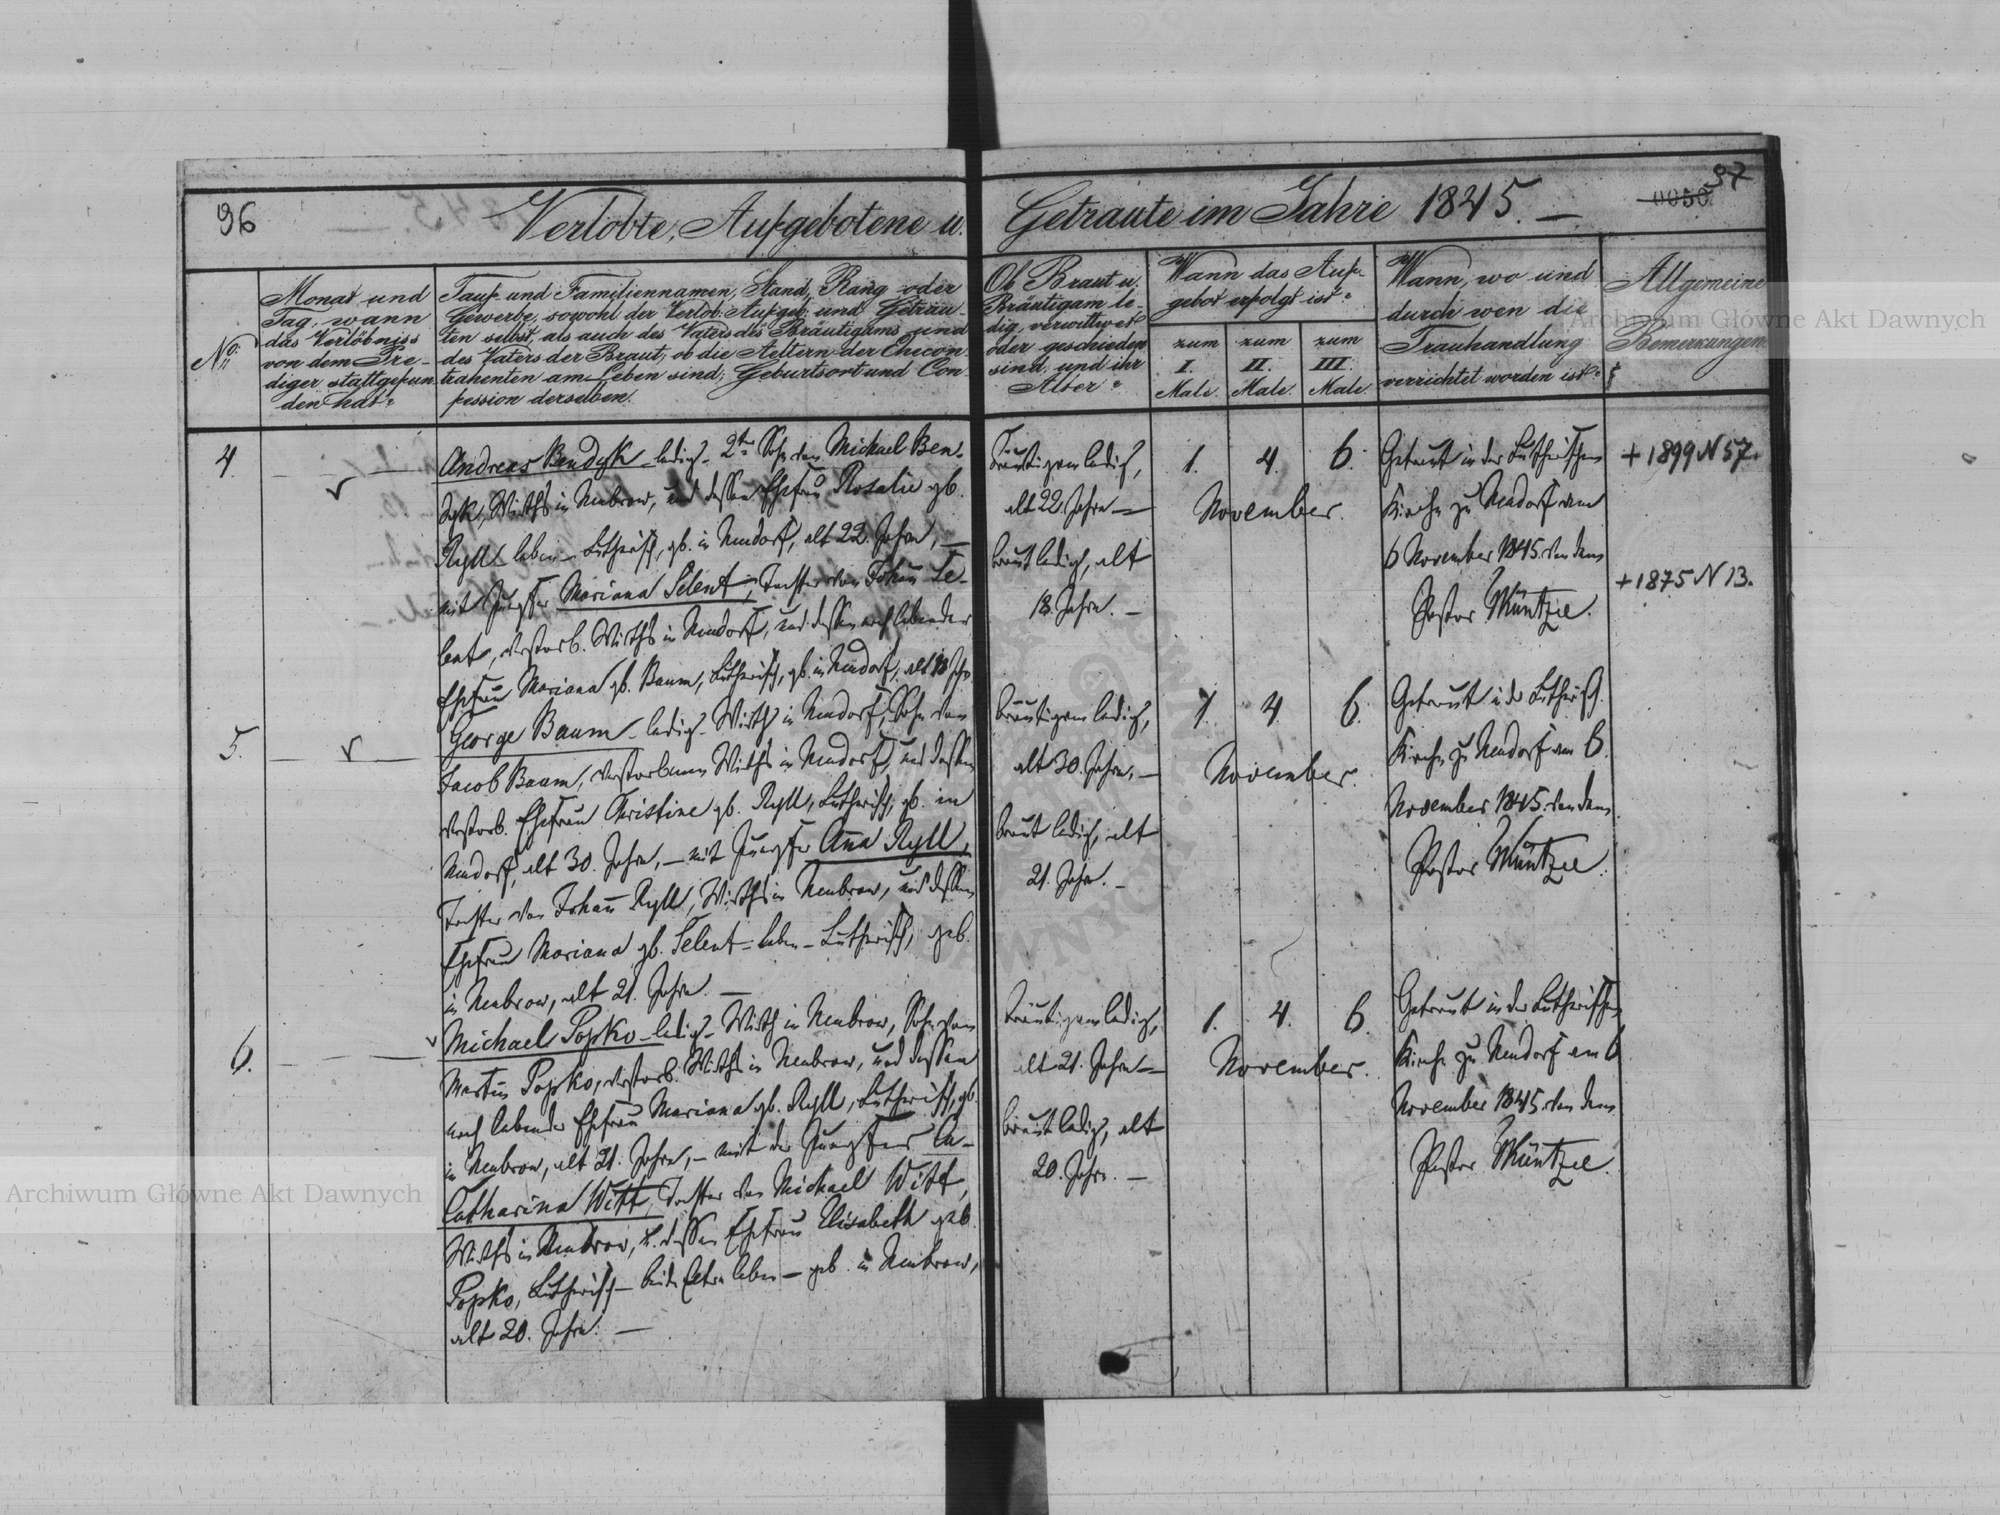 96
Verlobte, Aufgebotene u.
Getraute im Jahre 1845. —
0050
97
No
Monat und
Tag, wann
das Verlöbniss
von dem Pre-
diger stattgefun
den hat?
Tauf- und Familiennamen, Stand, Rang oder
Gewerbe, sowohl der Verlob. Aufgeb. und Getrau-
ten selbst, als auch des Vaters des Bräutigams und
des Vaters der Braut; ob die Aeltern der Ehecon-
trahenten am Leben sind; Geburtsort und Con-
fession derselben.
Ob Braut u.
Bräutigam le-
dig, verwittwet
oder geschieden
sind, und ihr
Alter?
Wann das Auf-
gebot erfolgt ist?
zum
I.
Male.
zum
II.
Male.
zum
III.
Male.
Wann, wo und
durch wen die
Trauhandlung
verrichtet worden ist?
Allgemeine
Bemerkungen
4.
Andreas Bendyk – ledig – 2ter Sohn von Michael Ben-
dyk, Wirths in Neubrow, und dessen Ehefrau Rosalie gb.
Ryll – leben – Lutherisch, gb. in Neudorf, alt 22. Jahre, —
mit Jungfer Mariana Selent, Tochter von Johann Se-
lent, verstorb. Wirths in Neudorf, und dessen noch lebender
Ehefrau Mariana gb. Baum, Lutherisch, gb. in Neudorf, alt 18 Jahr
Bräutigam ledig,
alt 22. Jahre —
braut ledig, alt
18. Jahre. —
1. 4. 6.
November.
Getraut in der Lutherischen
Kirche zu Neudorf am
6 November 1845 von dem
Pastor Müntzel.
+ 1899 N 57.
+ 1875 N 13.
5.
George Baum – ledig – Wirth in Neudorf, Sohn von
Jacob Baum, verstorbenen Wirths in Neudorf, und dessen
verstorb. Ehefrau Christine gb. Ryll, Lutherisch, gb. in
Neudorf, alt 30. Jahre, – mit Jungfer Anna Ryll,
Tochter von Johann Ryll, Wirths in Neubrow, und dessen
Ehefrau Mariana gb. Selent – leben – Lutherisch, geb.
in Neubrow, alt 21. Jahre. —
Bräutigam ledig,
alt 30. Jahre, —
braut ledig, alt
21. Jahr. –
1. 4. 6.
November.
Getraut in der Lutherisch.
Kirche zu Neudorf am 6.
November 1845 von dem
Pastor Müntzel.
6.
Michael Popko – ledig – Wirth in Neubrow, Sohn vom
Martin Popko, verstorb. Wirths in Neubrow, und dessen
noch lebender Ehefrau Mariana gb. Ryll, Lutherisch, gb.
in Neubrow, alt 21. Jahre, – mit der Jungfer Ca-
Catharina Witt, Tochter von Michael Witt,
Wirths in Neubrow, u. dessen Ehefrau Elisabeth geb.
Popko, Lutherisch – beide Eltern leben – geb. in Neubrow,
alt 20. Jahre. —
Bräutigam ledig,
alt 21. Jahre —
braut ledig, alt
20. Jahre. —
1. 4. 6.
November.
Getraut in der Lutherischen
Kirche zu Neudorf am 6
November 1845 von dem
Pastor Müntzel.
Archiwum Główne Akt Dawnych
Archiwum Główne Akt Dawnych